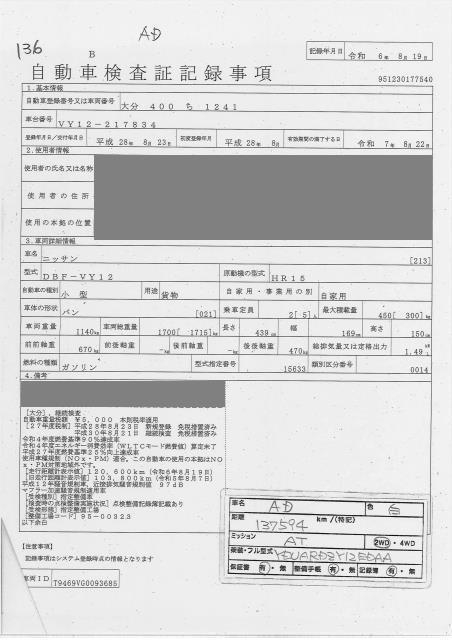 136
AD
B
記録年月日 令和 6年 8月19日
自動車検査証記録事項
951230177540
1.基本情報
自動車登録番号又は車両番号 大分 400 ち 1241
車台番号 VY12-217834
登録年月日/交付年月日 平成 28年 8月 23日 初度登録年月 平成 28年 8月 有効期間の満了する日 令和 7年 8月 22日
2.使用者情報
使用者の氏名又は名称
使用者の住所
使用の本拠の位置
3.車両詳細情報
車名 ニッサン [213]
型式 DBF-VY12 原動機の型式 HR15
自動車の種別 小型 用途 貨物 自家用・事業用の別 自家用
車体の形状 バン [021] 乗車定員 2[ 5]人 最大積載量 450[ 300]kg
車両重量 1140kg 車両総重量 1700[ 1715]kg 長さ 439cm 幅 169cm 高さ 150cm
前前軸重 670kg 前後軸重 -kg 後前軸重 -kg 後後軸重 470kg 総排気量又は定格出力 1.49
燃料の種類 ガソリン 型式指定番号 15633 類別区分番号 0014
4.備考
[大分],継続検査
自動車重量税額 ¥5,000 本則税率適用
[27年度税制]平成28年8月23日 新規登録 免税措置済み
平成30年8月21日 継続検査 免税措置済み
令和4年度燃費基準90%達成車
令和4年度エネルギー消費効率(WLTCモード燃費値)算定未了
平成27年度燃費基準25%向上達成車
使用車種規制(NOx・PM)適合,この自動車の使用の本拠はNOx・PM対策地域外です。
[走行距離計表示値]120,600km(令和6年8月19日)
[旧走行距離計表示値]103,800km(令和5年8月7日)
平成12年騒音規制車,近接排気騒音規制値 97dB
マフラー加速騒音規制適用車
[受検種別]指定整備車
[検査時の点検整備実施状況]点検整備記録簿記載あり
[受検形態]指定整備工場
[整備工場コード]95-00323
以下余白
車名 AD 色
距離 137594 km/(特記)
ミッション AT 2WD・4WD
架装・フル型式
保証書 有・無 整備手帳 有・無 記録簿 有・無
[注意事項]
記録事項はシステム登録時点の情報となります
車両ID T9469VG0093685